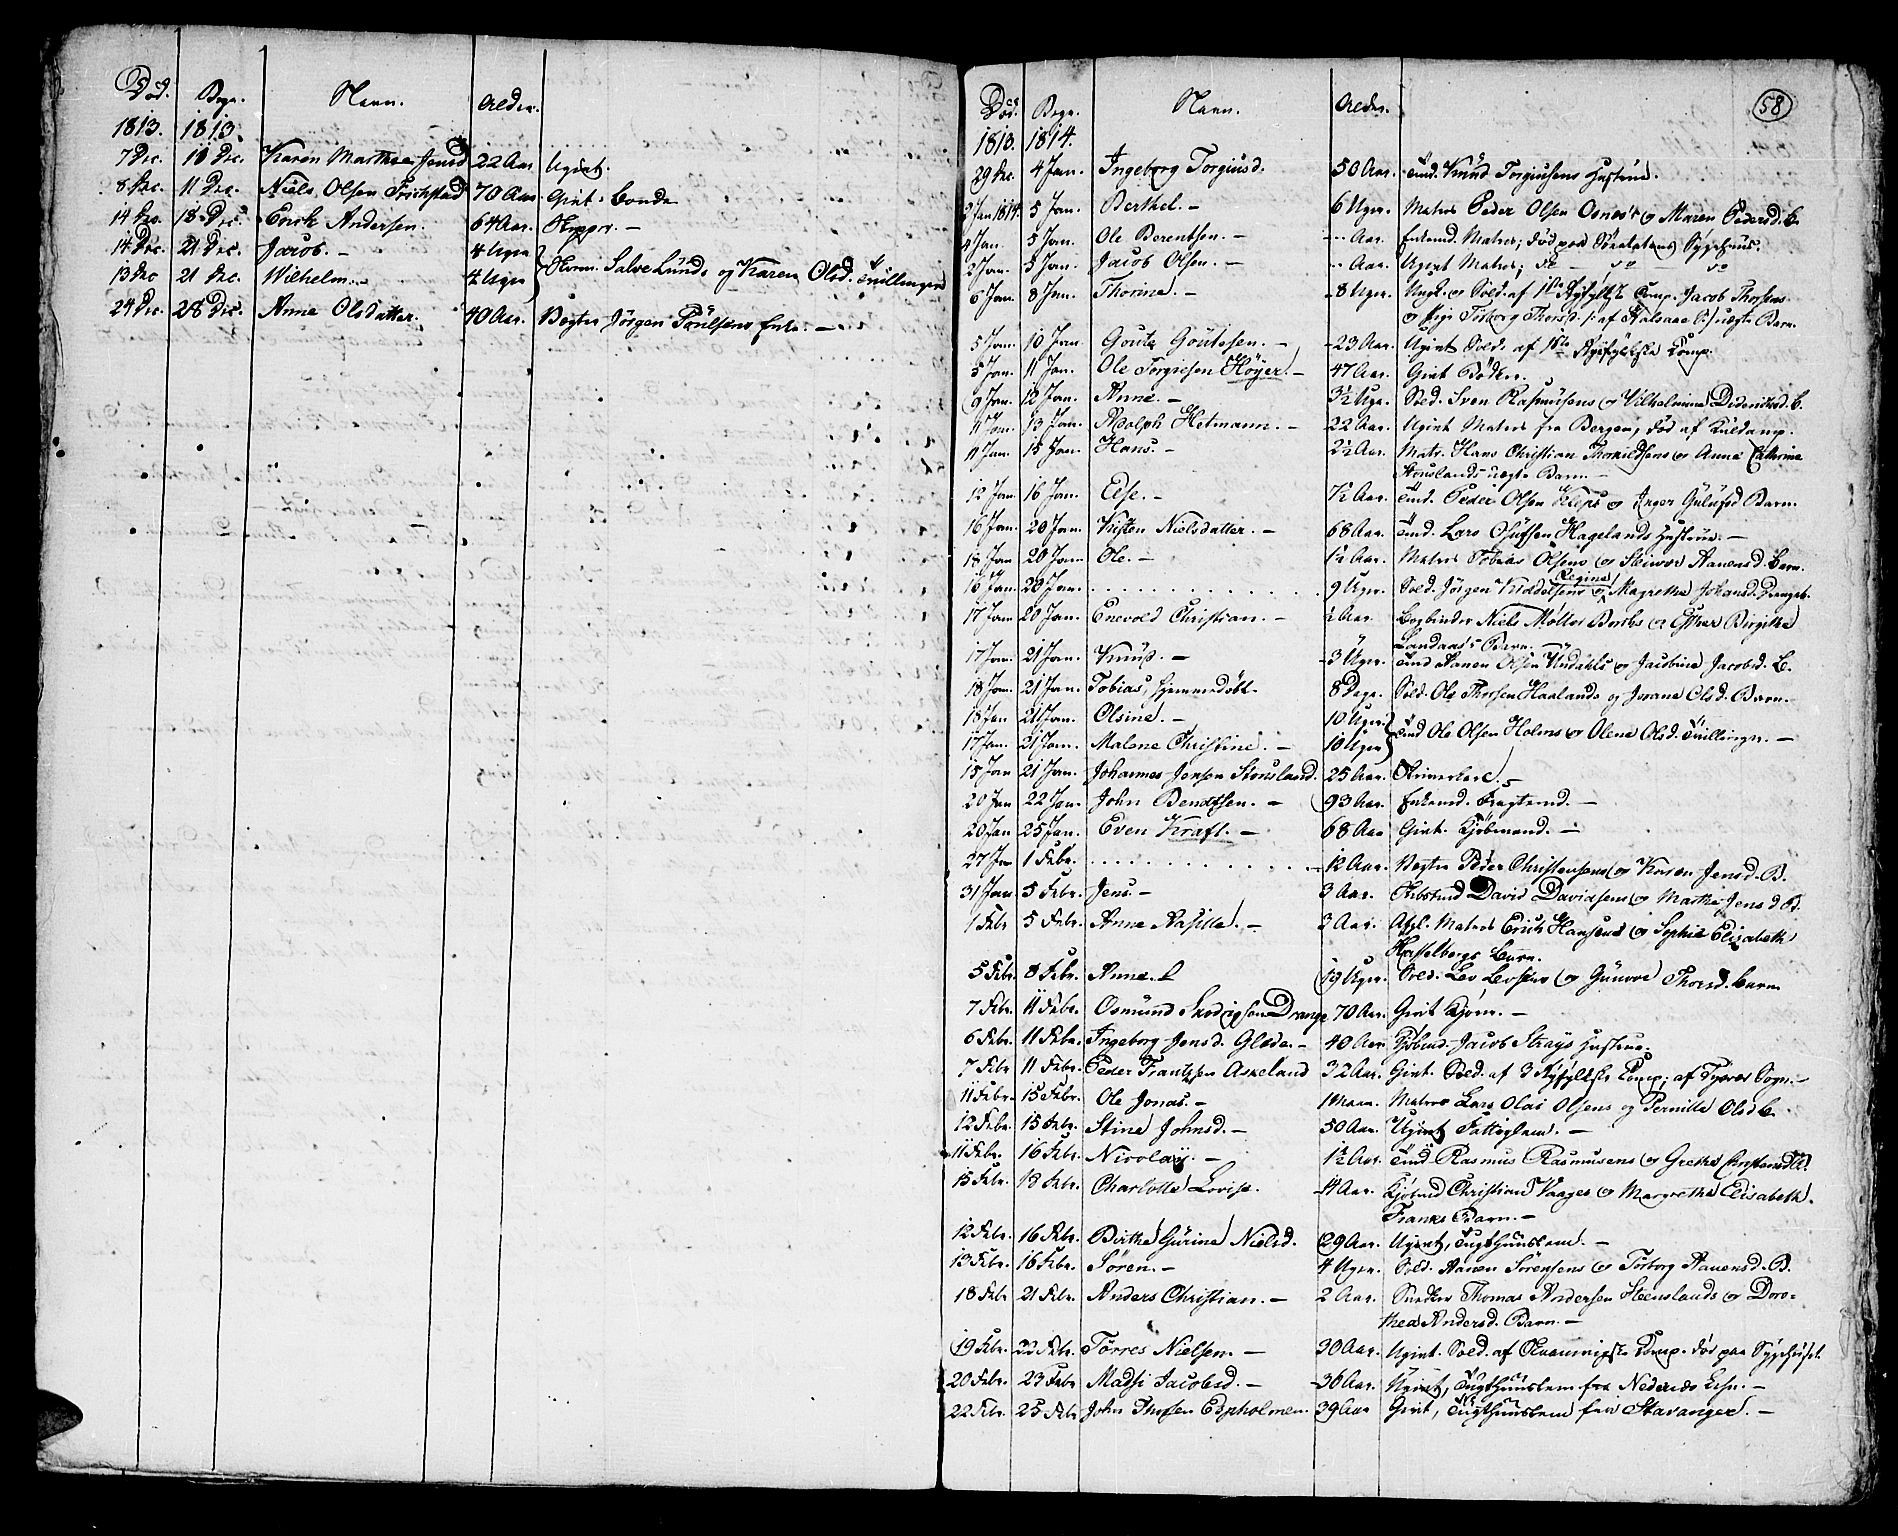 Død. Begr. Navn. Alder.
1813. 1813.
7 Dec. 10 Dec. Karen Marthea Jensd 22 Aar Ugivt.
8 Dec. 11 Dec. Niels Olsen 70 Aar Givt Bonde
14 Dec. 18 Dec. Erich Andersen. 64 Aar. —
14 Dec. 21 Dec. Jacob. — 4 Uger
13 Dec 21 Dec. Wilhelm. — 4 Uger Salve Lunds og Karen Olsd. Tvillinger
24 Dec. 28 Dec. Anne Olsdatter. 40 Aar. Vægter Jörgen Poulsens Enke. —
58
Død. Begr. Navn. Alder.
1813. 1814.
29 Dec. 4 Jan. Ingeborg Torgiusd. 50 Aar. Tind. Knud Torgiusens Hustrue.
2 Jan 1814. 5 Jan. Berthel. — 6 Uger. Matros Peder Olsen og Maren Pedersd. B.
4 Jan. 5 Jan. Ole Berentsen. — -- Aar. Enkemd. Matros; død paa Söeetatens Sygehuus.
2 Jan. 5 Jan. Jacob Olsen. — -- Aar. Ugivt Matros; do — do — do
6 Jan. 8 Jan. Thorine. — 8 Uger. Ungk. og Sold. af 1ste Ryfylkske Comp. Jacob Thorsens
og Pige Torborg Thorsd. /: af Halsaae S:/ uægte Barn.
5 Jan. 10 Jan. Goute Goutesen. — 23 Aar. Ugivt Sold. af 1ste Ryefylkske Comp.
5 Jan. 11 Jan. Ole Torgiesen Höyer. — 47 Aar. Givt Bödker.
9 Jan. 12 Jan. Anne. — 3½ Uge. Sold. Sven Rasmusens og Vilhelmine Dideriksd. B.
11 Jan. 13 Jan. Adolph Hetmann. — 22 Aar. Ugivt Matros fra Bergen, død af Kuldamp.
11 Jan. 15 Jan. Hans. — 2½ Aar. Matr. Hans Christian Thorkildsens og Anne Cathrine
Stouslands uægte Barn. —
12 Jan. 16 Jan. Else. — 7½ Aar. Tind. Peder Olsen Kleps og Inger Gulufsd Barn.
16 Jan. 20 Jan. Kisten Nielsdatter. — 68 Aar. Tind. Lars Olufsen Hagelands Hustrue. —
18 Jan 20 Jan. Ole. — 1½ Aar. Matros Tobias Olsens og Steinvor Aanensd. Barn.
16 Jan. 20 Jan. . . . . . . . . . . . . 9 Uger. Sold. Jörgen og Regine Magrethe Johansd. Drengeb.
17 Jan 20 Jan. Enevold Christian. — Aar. Bogbinder Niels Möller Borchs og Esther Birgithe
Landaas's Barn. —
17 Jan. 21 Jan. Knud. — 3 Uger. Tind Aanen Olsen Undahls og Jacobine Jacobsd. B.
18 Jan. 21 Jan. Tobias, hjemmedöbt. 8 Dage. Sold. Ole Thorsen Haalands og Jorane Olsd. Barn.
18 Jan 21 Jan. Olsine. — 10 Uger. Tind Ole Olsen Holms og Olene Olsd. Tvillinger. —
17 Jan. 21 Jan. Malene Christine. — 10 Uger
15 Jan 21 Jan. Johannes Jensen Stousland. 25 Aar. Skriverkarl. —
20 Jan 22 Jan. John Bendtsen. — 93 Aar. Enkemd. Fragtemd. —
20 Jan 25 Jan. Even Kraft. — 68 Aar Givt. Kjöbmand. —
27 Jan 1 Febr. . . . . . . . . . . . . 12 Aar. Vægter Peder Christensens og Karen Jensd. B.
31 Jan. 5 Febr. Jens. — 3 Aar. Arbeidsmd David Davidsens og Marthe Jensd. B.
1 Febr 5 Febr. Anne — 3 Aar. Matros Erich Hansens og Sophie Elisabeth
Hasselbergs Barn.
5 Febr. 8 Febr. Anne. 19 Uger. Sold. Lev Levsens og Gunvor Thorsd. Barn
7 Febr. 11 Febr. Osmund Drange 70 Aar. Givt —
6 Febr. 11 Febr. Ingeborg Jensd. Glöde. — 40 Aar Kjöbmd. Jacob Strays Hustrue.
7 Febr 11 Febr. Peder Frantzsen Askeland 32 Aar. Givt. Sold. af 3 Ryfylkske Comp; af Tysvær Sogn. —
11 Febr. 15 Febr. Ole Jonas. — 1 Maan. Matros Lars Olai Olsens og Pernille Olsd B.
12 Febr. 15 Febr. Stine Johnsd. — 50 Aar. Ugivt Fattiglem. —
11 Febr. 16 Febr. Nicolay. — 1½ Aar. Tind Rasmus Rasmusens og Grethe Christensd. B.
15 Febr. 18 Febr. Charlotte Lovise. 4 Aar. Kjöbmd Christian Vaages og Margrethe Elisabeth
Franks Barn. —
12 Febr. 16 Febr. Birthe Gurine Nielsd. 29 Aar. Ugivt, Tugthuuslem. —
13 Febr. 16 Febr. Sören. — 4 Uger. Sold. Aanen Sörensens og Torborg Aanensd. B.
18 Febr 21 Febr. Anders Christian. — 2 Aar. Snedker Thomas Andersen Steenslands og Doro-
thea Andersd. Barn. —
19 Febr. 22 Febr. Törres Nielsen. — 30 Aar. Ugivt. Sold. af Comp. död paa Sygehuset.
20 Febr. 23 Febr Madsi Jacobsd. — 36 Aar. Ugivt, Tugthuuslem fra Nedenæs Lehn. —
22 Febr. 25 Febr John Thorsen Espholmen. 39 Aar Givt, Tugthuuslem fra Stavanger. —